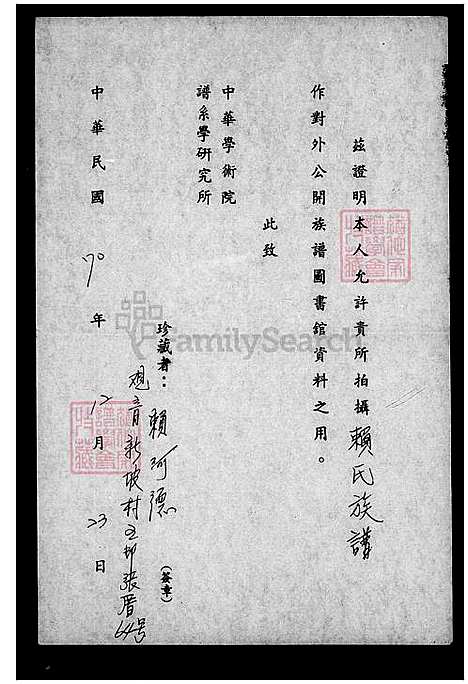 茲證明本人允許貴所拍攝賴氏族譜
作對外公開族譜圖書館資料之用。
此致
中華學術院
譜系學研究所
珍藏者：賴阿德
(簽章)
觀音新坡村 鄰張厝64号
中華民國70年12月23日
FamilySearch